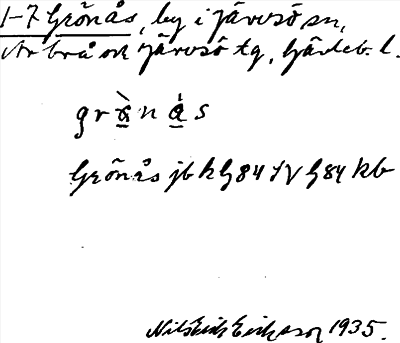 1-7 Grönås, by i Järvsö sn,
Arbrå och Järvsö tg, Gävleb. l.
grö̀nǻs
Grönås jb kb 84 kb
Nils Erik Eriksson 1935.